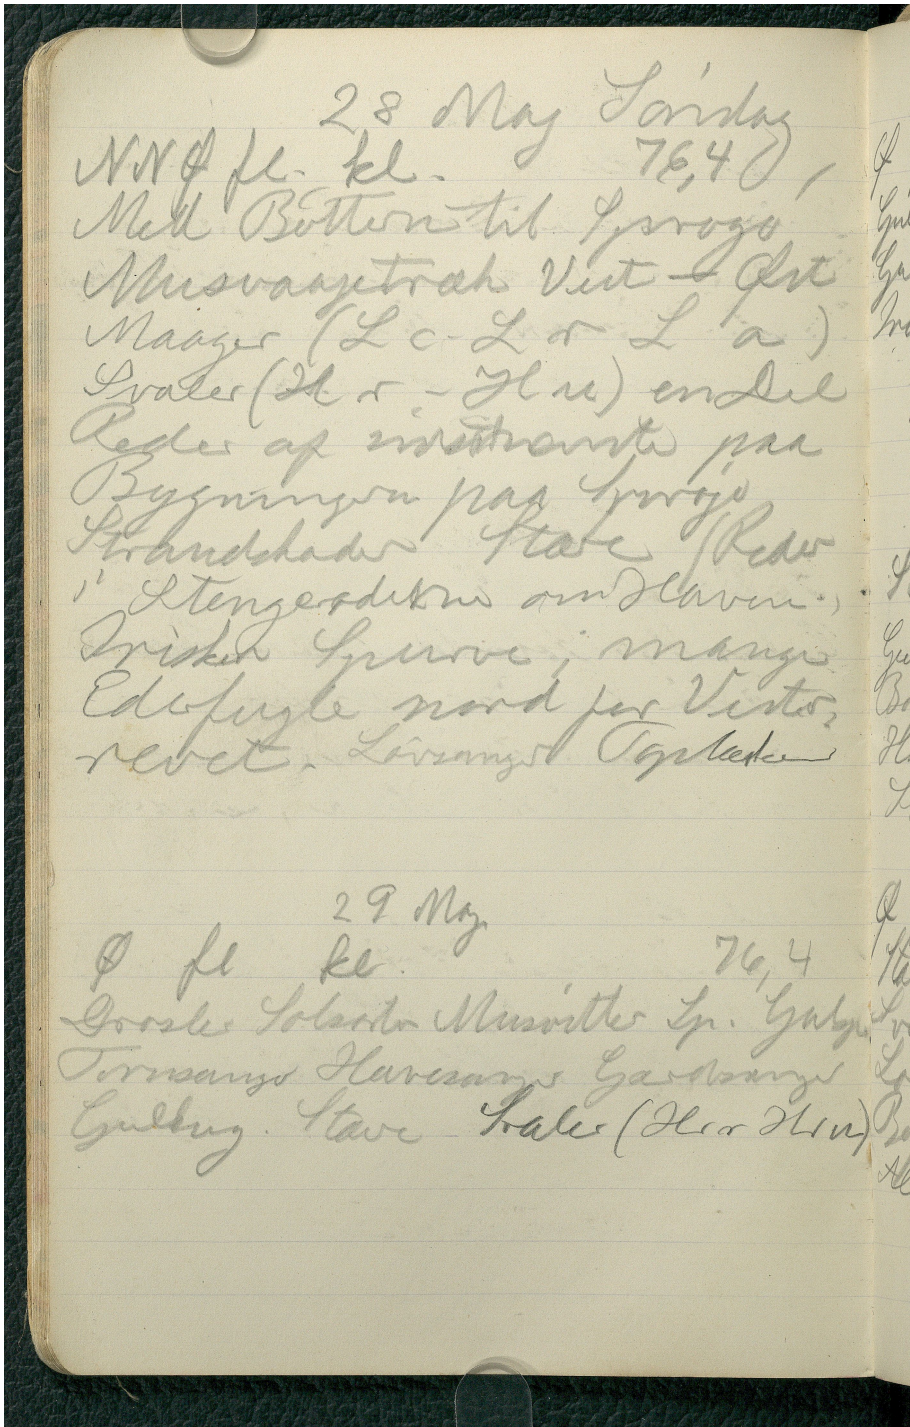 28 Maj Søndag
NNØ fl. kl. 76,4
Med Bötteren til Sprogø
Musvaagetræk Vest – Øst
Maager (L c - L r L a)
Svaler (H r - H u) en Del
Reder af sidstnævnte paa
Bygningen paa Sprogø
Strandskader Stære (Reder
i Stengerderne om Haven.)
Irisker Spurve; mange
Ederfugle nord for Vester-
revet. Løvsanger Toplærker
29 Maj
Ø fl kl. 76,4
Drosler Solsorte Musvitter Sp. Gulsp.
Tornsanger Havesanger Gærdesanger
Gulbug. Stære Svaler (H r H u)